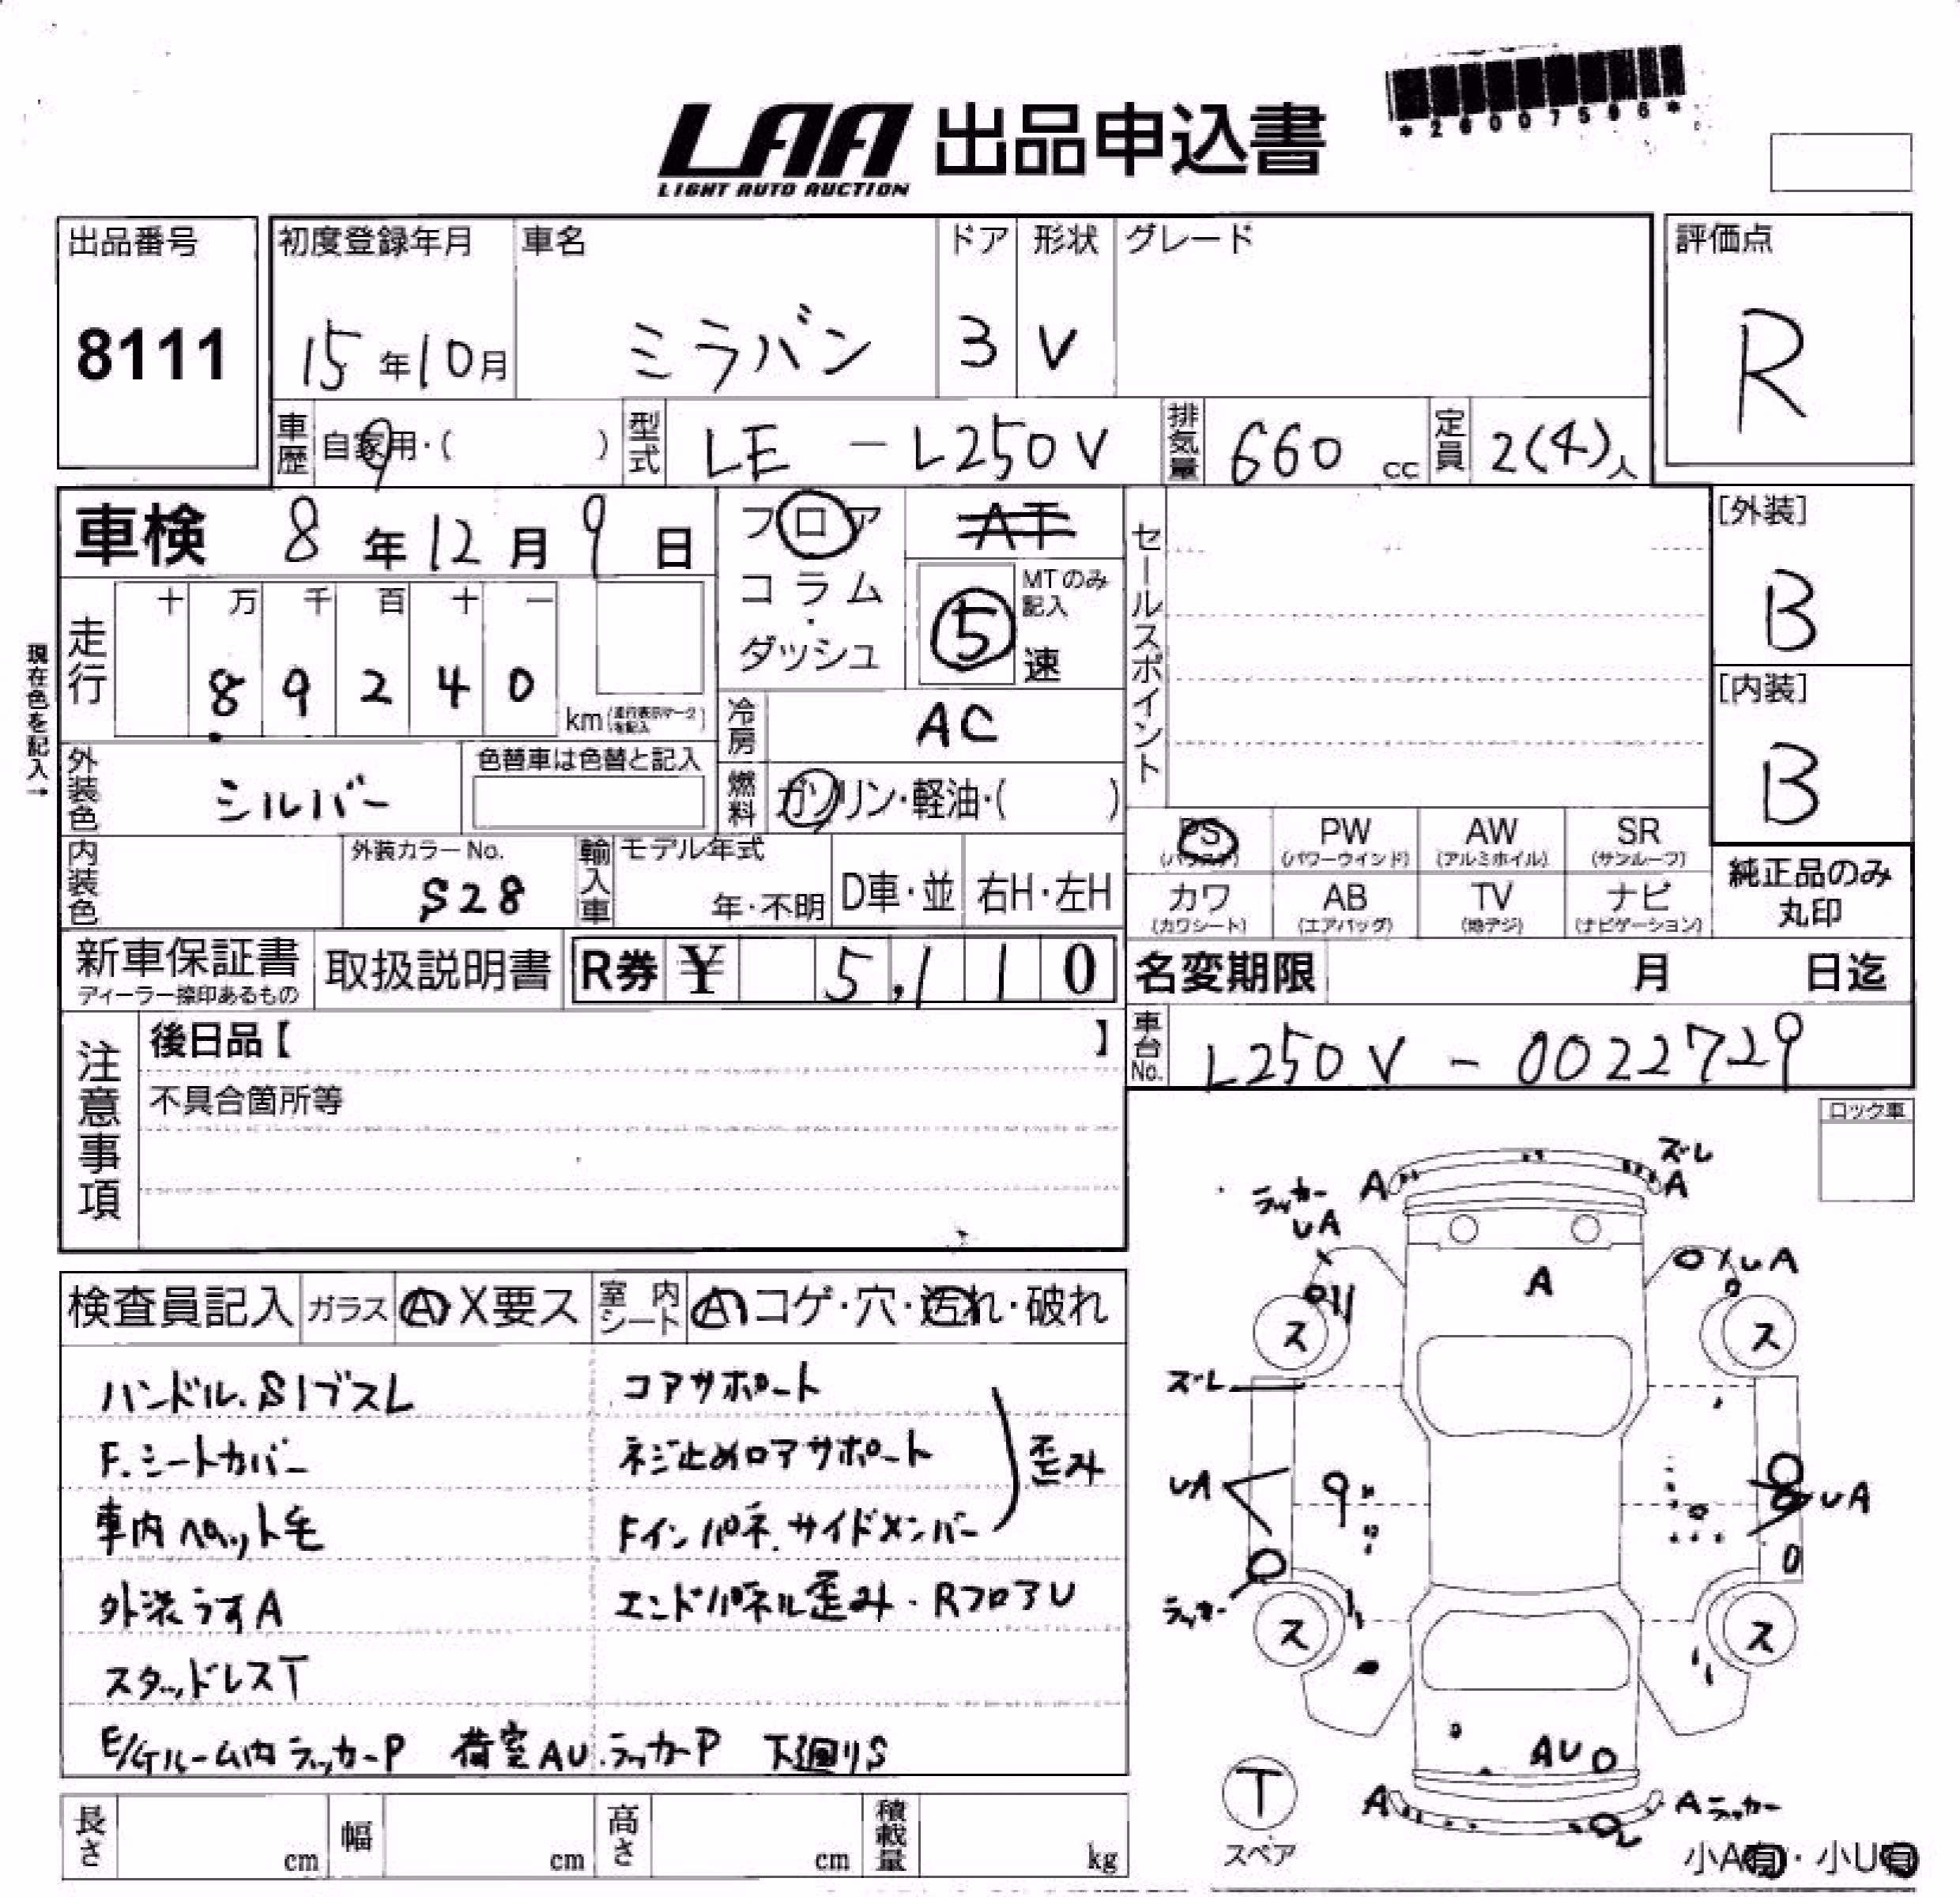 LAA 出品申込書
LIGHT AUTO AUCTION
*26007596*
出品番号
8111
初度登録年月
15年10月
車名
ミラバン
ドア
3
形状
V
グレード
評価点
R
車歴
自家用・( )
型式
LE - L250V
排気量
660 cc
定員
2(4)人
車検 8年12月9日
フロア
コラム
・
ダッシュ
AT
5
MTのみ
記入
速
セールスポイント
[外装]
B
[内装]
B
現在色を記入→
走行
十 万 千 百 十 一
8 9 2 4 0
km(走行表示マークを記入)
冷房
AC
外装色
シルバー
色替車は色替と記入
燃料
ガソリン・軽油・( )
内装色
外装カラーNo.
S28
輸入車
モデル年式
年・不明
D車・並
右H・左H
PS
(パワステ)
PW
(パワーウインド)
AW
(アルミホイル)
SR
(サンルーフ)
カワ
(カワシート)
AB
(エアバッグ)
TV
(地デジ)
ナビ
(ナビゲーション)
純正品のみ
丸印
新車保証書
ディーラー捺印あるもの
取扱説明書
R券 ¥ 5,110
名変期限 月 日迄
車台No.
L250V - 0022729
注意事項
後日品【 】
不具合箇所等
ロック車
検査員記入
ガラス
A X要ス
室内シート
A コゲ・穴・汚れ・破れ
ハンドル.S1ブスレ
F.シートカバー
車内ペット毛
外装うすA
スタッドレスT
E/Gルーム内ラッカーP 荷室AU.ラッカーP 下廻りS
コアサポート
ネジ止めロアサポート
Fインパネ.サイドメンバー
歪み
エンドパネル歪み・RフロアU
ズレ
A
A
ラッカー
UA
UA
A
ス
ス
ズレ
UA
9
UA
ラッカー
ス
ス
AU
A
A ラッカー
U
T
スペア
小A有・小U有
長さ
cm
幅
cm
高さ
cm
積載量
kg